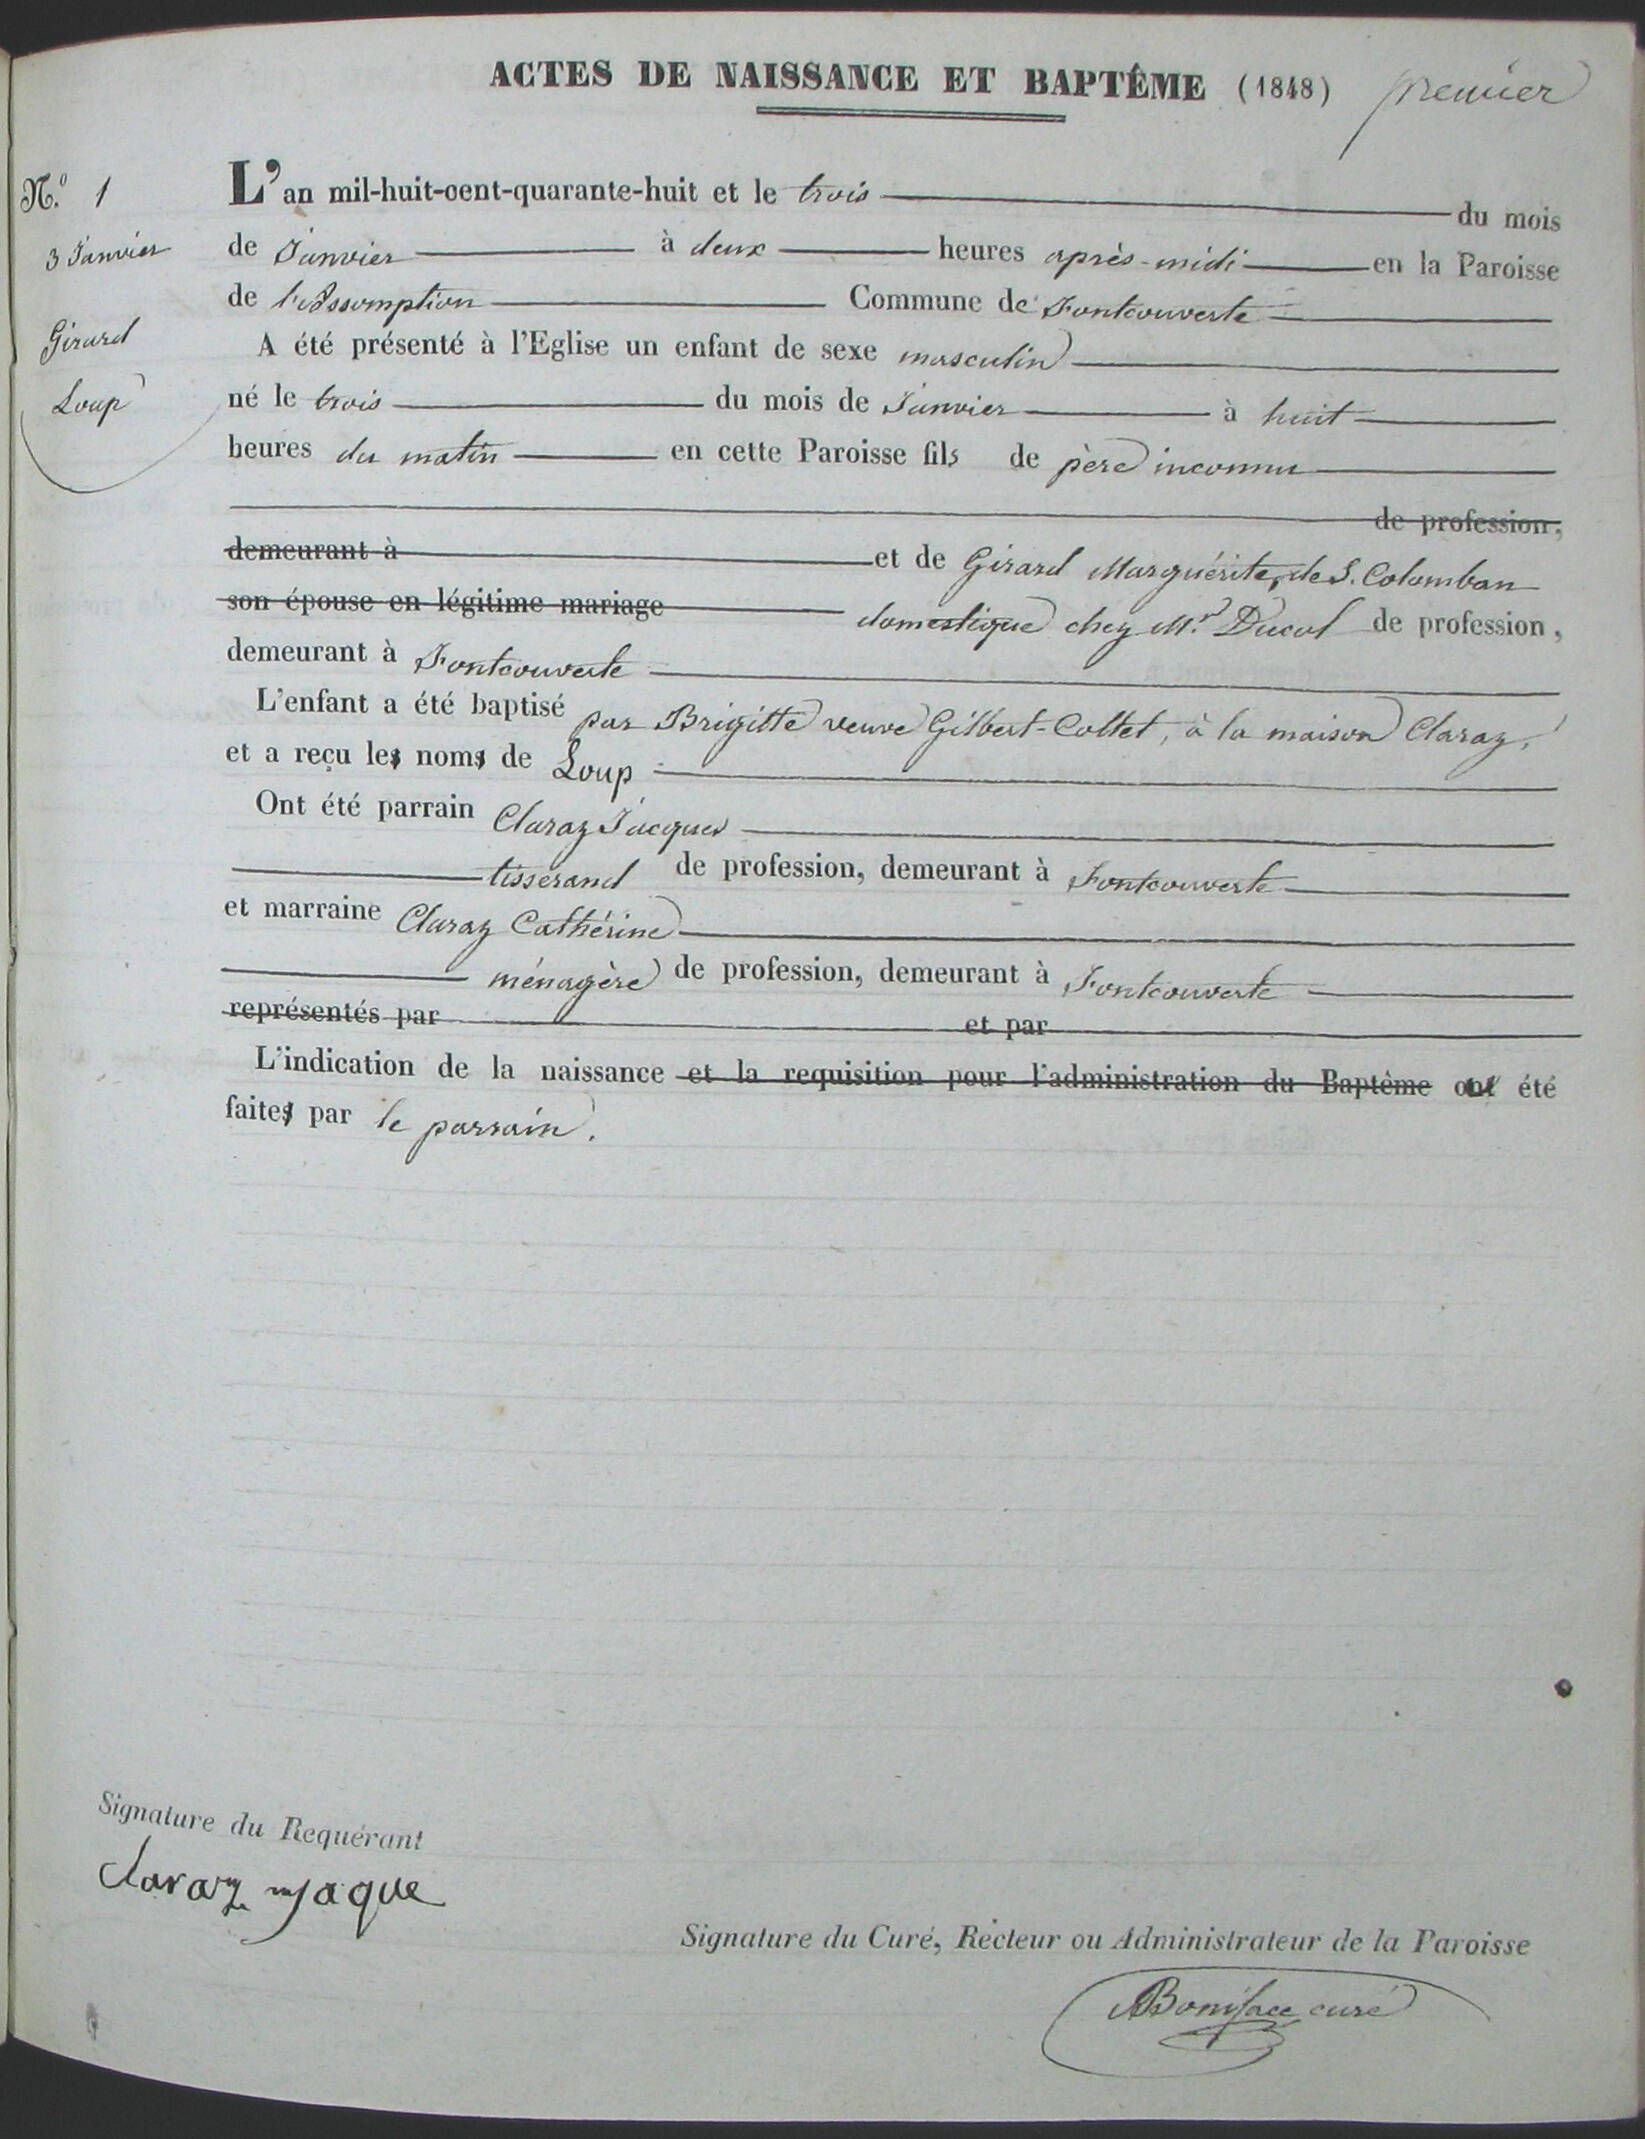 ACTES DE NAISSANCE ET BAPTÊME (1848) premier
N.º 1
3 Janvier
Girard
Loup
L'an mil-huit-cent-quarante-huit et le trois du mois
de Janvier à deux heures après-midi en la Paroisse
de l'Assomption Commune de Fontcouverte
A été présenté à l'Eglise un enfant de sexe masculin
né le trois du mois de Janvier à huit
heures du matin en cette Paroisse fils de père inconnu
de profession,
demeurant à et de Girard Marguérite, de S. Colomban
son épouse en légitime mariage domestique chez M.r Ducol de profession,
demeurant à Fontcouverte
L'enfant a été baptisé par Brigitte veuve Gilbert-Collet, à la maison Claraz,
et a reçu les noms de Loup
Ont été parrain Claraz Jacques
tisserand de profession, demeurant à Fontcouverte
et marraine Claraz Cathérine
ménagère de profession, demeurant à Fontcouverte
représentés par et par
L'indication de la naissance et la requisition pour l'administration du Baptême ont été
faites par le parrain.
Signature du Requérant
Claraz jaque
Signature du Curé, Recteur ou Administrateur de la Paroisse
Boniface curé